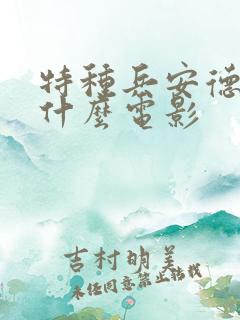 特種兵安德
什麼電影
吉村明美
未经同意禁止转载